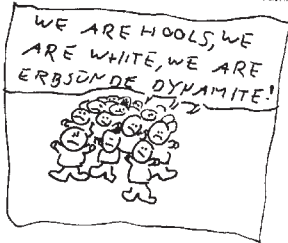 WE ARE HOOLS, WE
ARE WHITE, WE ARE
ERBSÜNDE DYNAMITE!